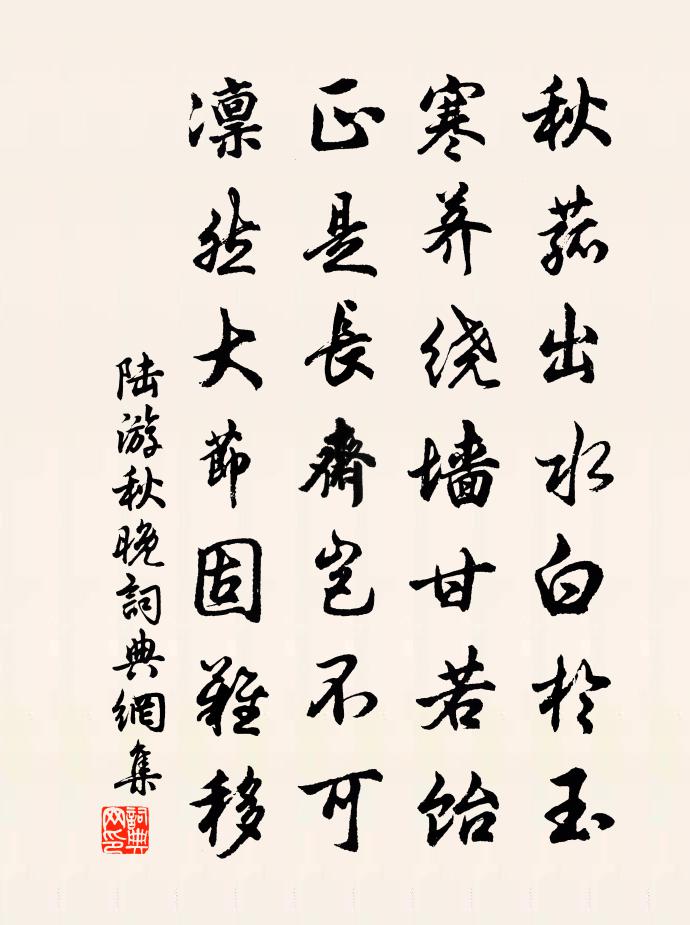 秋菰出水白於玉
寒荠绕墙甘若饴
正是長齋岂不可
凛然大節固難移
陆游秋晚詞典網集
詞典
网印